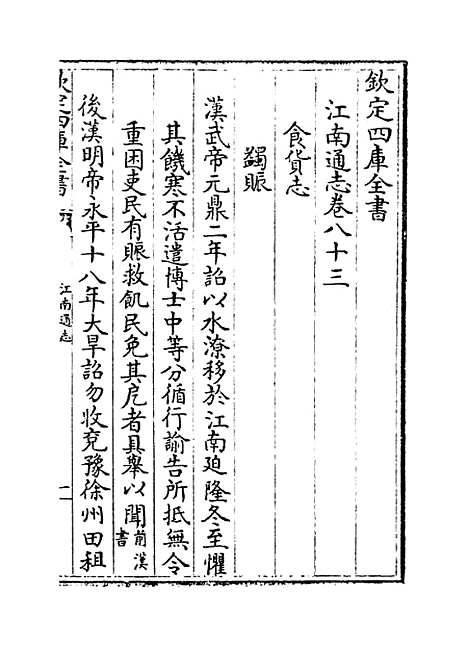 欽定四庫全書
江南通志卷八十三
食貨志
蠲賑
漢武帝元鼎二年詔以水潦移於江南廹隆冬至懼
其饑寒不活遣博士中等分循行諭告所抵無令
重困吏民有賑救飢民免其戹者具舉以聞前漢書
後漢明帝永平十八年大旱詔勿收兗豫徐州田租
欽定四庫全書
江南通志